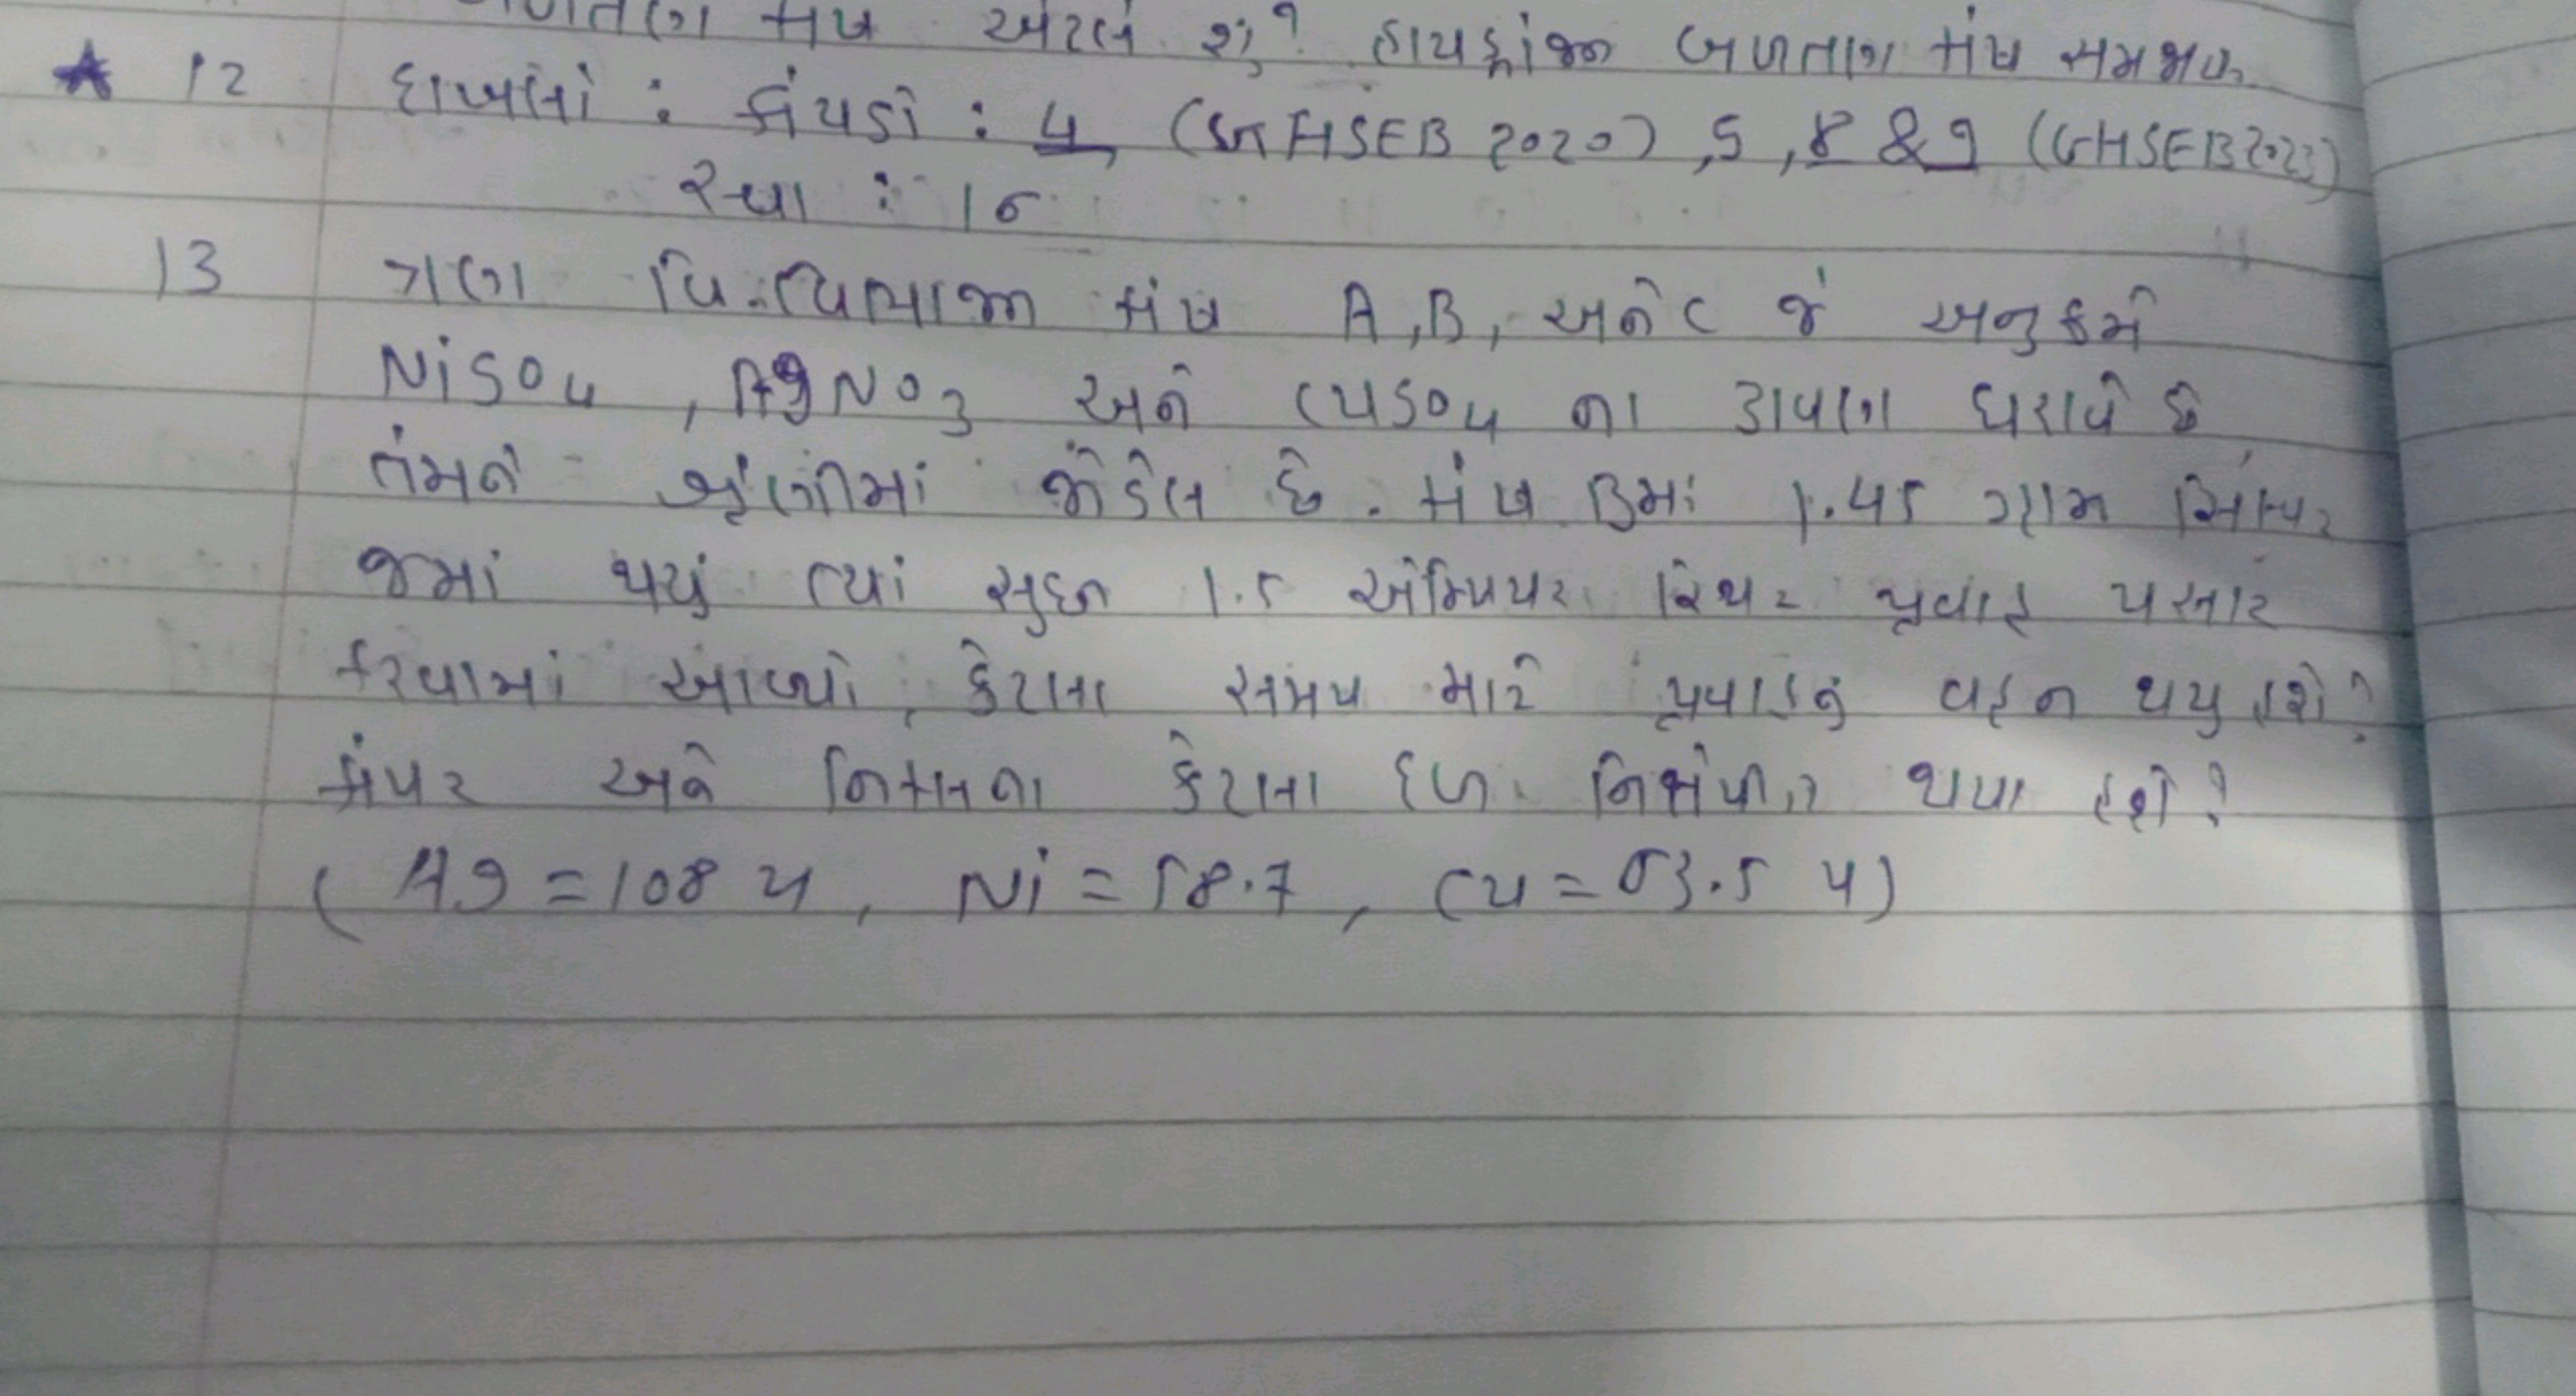 કોષ એટલે શું? હાઈડ્રોજન બળતણ કોષ સમજાવો.
★ 12 દાખલો : કોયડો : 4, (GHSEB 2020), 5, 8 & 9 (GHSEB 2023)
સ્વા : 16
13 ત્રણ વિ.વિભાજન કોષ A, B, અને C જે અનુક્રમે
NiSO4, AgNO3 અને CuSO4 ના દ્રાવણ ધરાવે છે
તેમને શ્રેણીમાં જોડેલ છે. કોષ Bમાં 1.45 ગ્રામ સિલ્વર
જમાં થયું ત્યાં સુધી 1.5 એમ્પિયર સ્થિર પ્રવાહ પસાર
કરવામાં આવ્યો, કેટલા સમય માટે પ્રવાહનું વહન થયુ હશે?
કોપર અને નિકલના કેટલા દળ નિક્ષેપીત થયા હશે?
(Ag = 108 u, Ni = 58.7, Cu = 63.5 u)